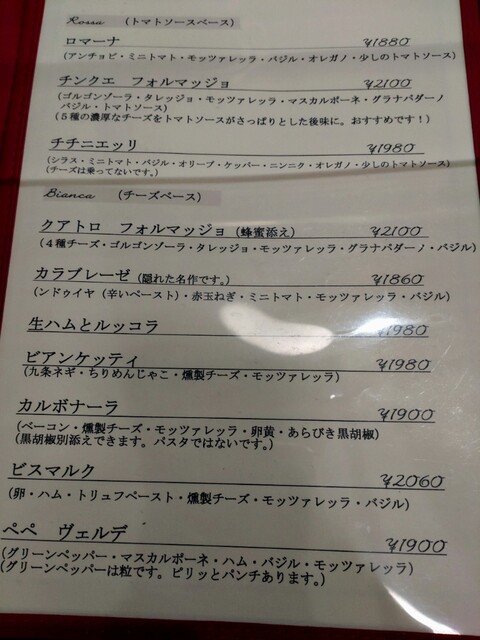 Rossa （トマトソースベース）
ロマーナ ¥1880
（アンチョビ・ミニトマト・モッツァレッラ・バジル・オレガノ・少しのトマトソース）
チンクエ　フォルマッジョ ¥2100
（ゴルゴンゾーラ・タレッジョ・モッツァレッラ・マスカルポーネ・グラナパダーノ
バジル・トマトソース）
（５種の濃厚なチーズをトマトソースがさっぱりとした後味に。おすすめです！）
チチニエッリ ¥1980
（シラス・ミニトマト・バジル・オリーブ・ケッパー・ニンニク・オレガノ・少しのトマトソース）
（チーズは乗ってないです。）
Bianca （チーズベース）
クアトロ　フォルマッジョ（蜂蜜添え） ¥2100
（４種チーズ・ゴルゴンゾーラ・タレッジョ・モッツァレッラ・グラナパダーノ・バジル）
カラブレーゼ（隠れた名作です。） ¥1860
（ンドゥイヤ（辛いペースト）・赤玉ねぎ・ミニトマト・モッツァレッラ・バジル）
生ハムとルッコラ ¥1980
ビアンケッティ ¥1980
（九条ネギ・ちりめんじゃこ・燻製チーズ・モッツァレッラ）
カルボナーラ ¥1900
（ベーコン・燻製チーズ・モッツァレッラ・卵黄・あらびき黒胡椒）
（黒胡椒別添えできます。パスタではないです。）
ビスマルク ¥2060
（卵・ハム・トリュフペースト・燻製チーズ・モッツァレッラ・バジル）
ペペ　ヴェルデ ¥1900
（グリーンペッパー・マスカルポーネ・ハム・バジル・モッツァレッラ）
（グリーンペッパーは粒です。ピリッとパンチあります。）